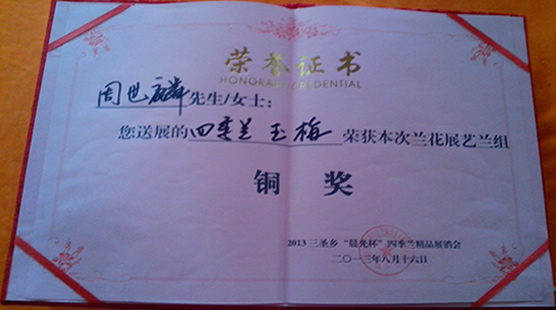 荣誉证书
HONORARY CREDENTIAL
周世麟先生/女士：
您送展的四季兰 玉梅 荣获本次兰花展艺兰组
铜奖
2013三圣乡“晨光杯”四季兰精品展销会
二〇一三年八月十六日